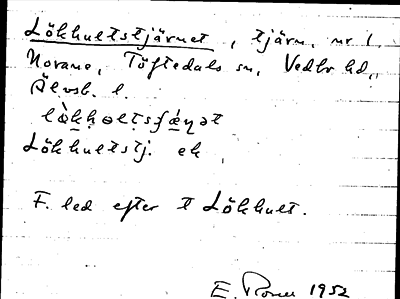 Lökhultstjärnet, tjärn, nr 1,
Norane, Töftedals sn, Vedbo hd,
Älvsb. l.
Lökhultstj. ek
F. led efter t Lökhult.
E. 1952